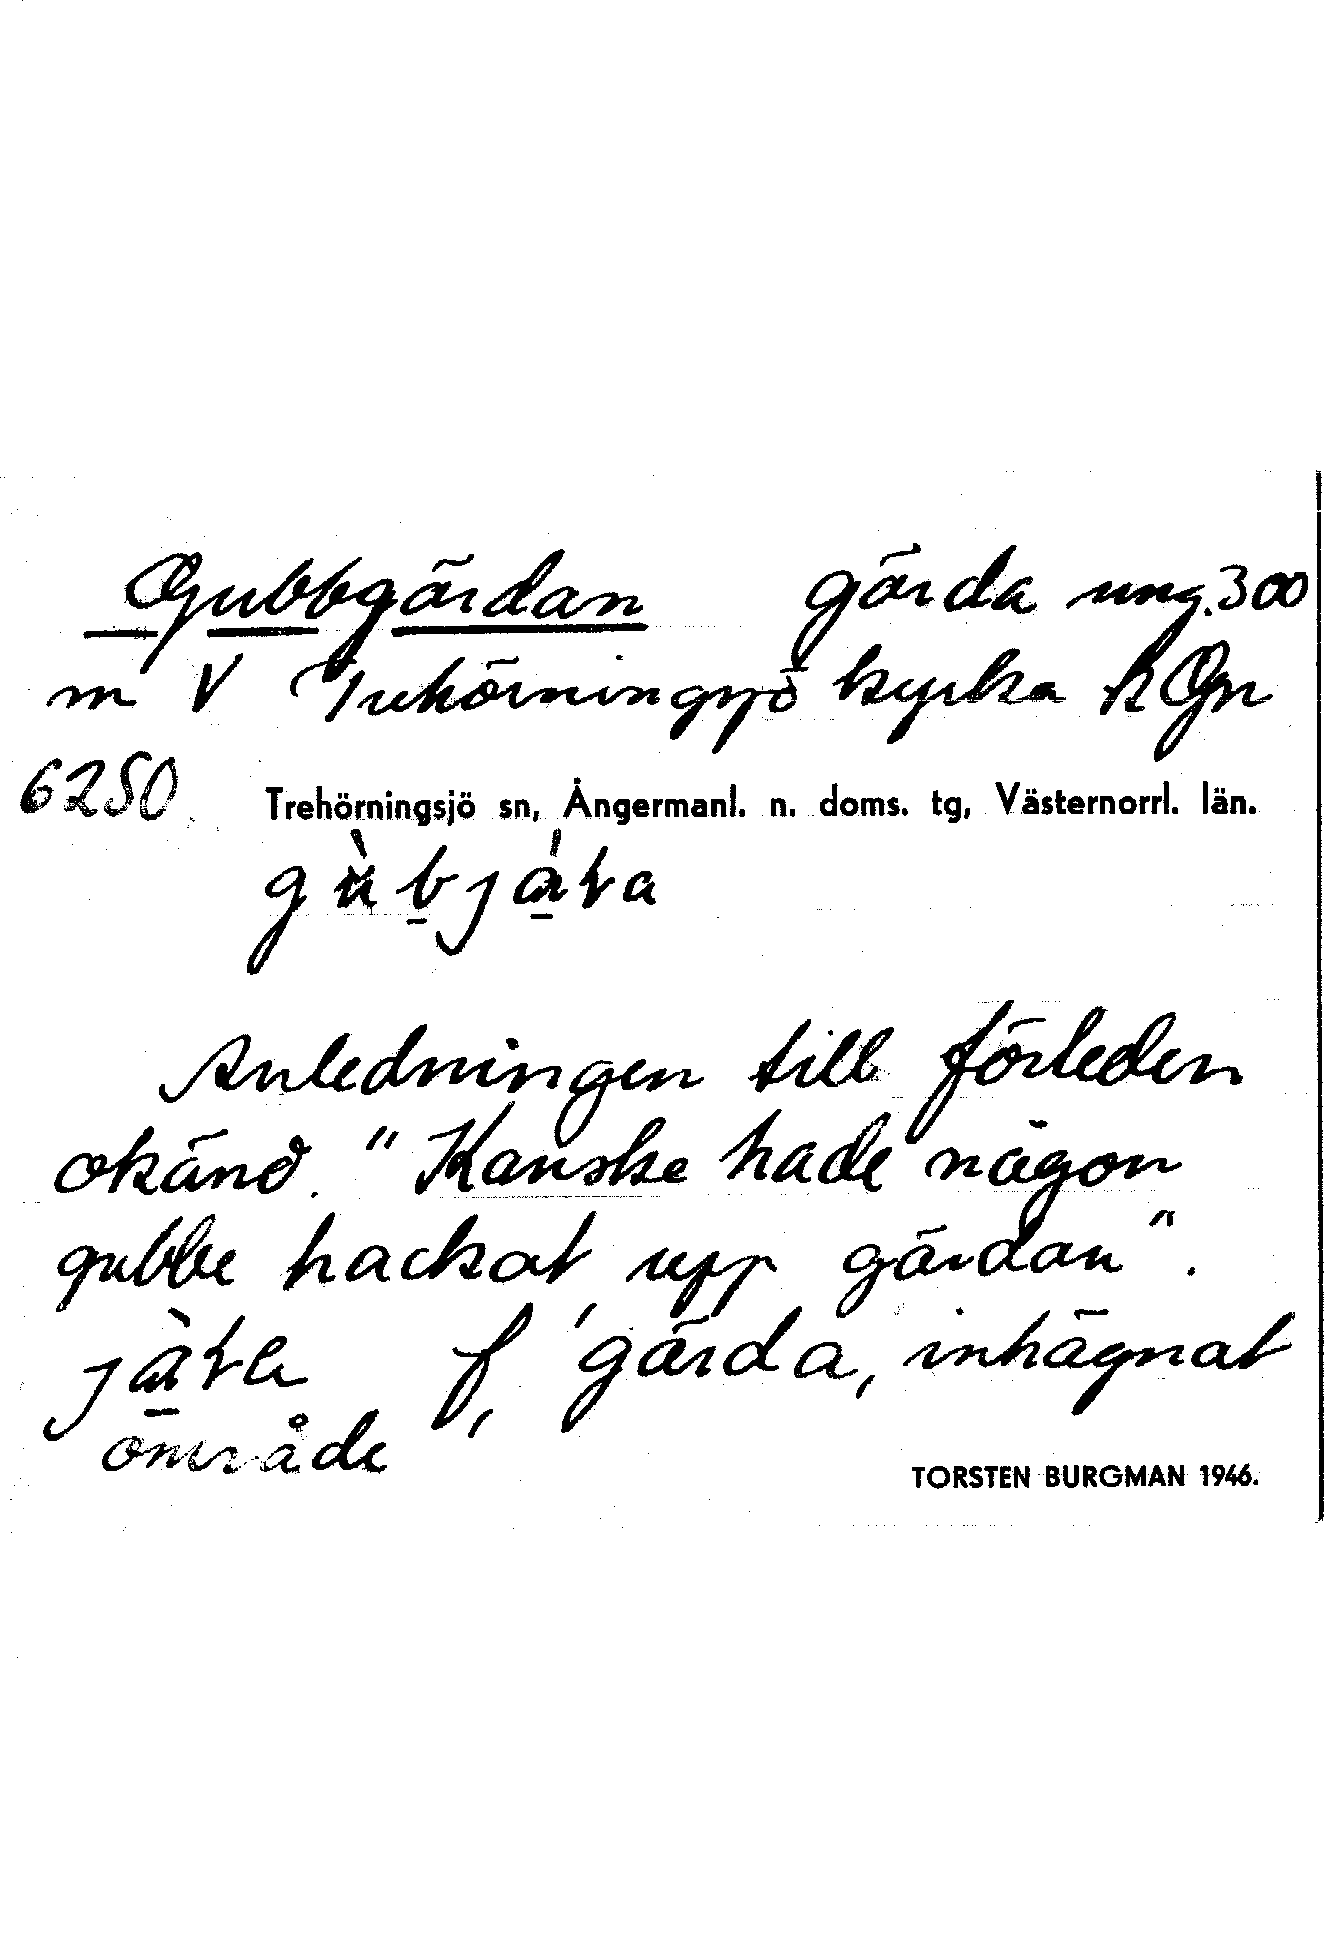 Gubbgärdan gärda ung. 300
m V Trehörningsjö kyrka RGr
6250 Trehörningsjö sn, Ångermanl. n. doms. tg, Västernorrl. län.
Anledningen till förleden
okänd. "Kanske hade någon
gubbe hackat upp gärdan".
f, 'gärda, inhägnat
område'
TORSTEN BURGMAN 1946.